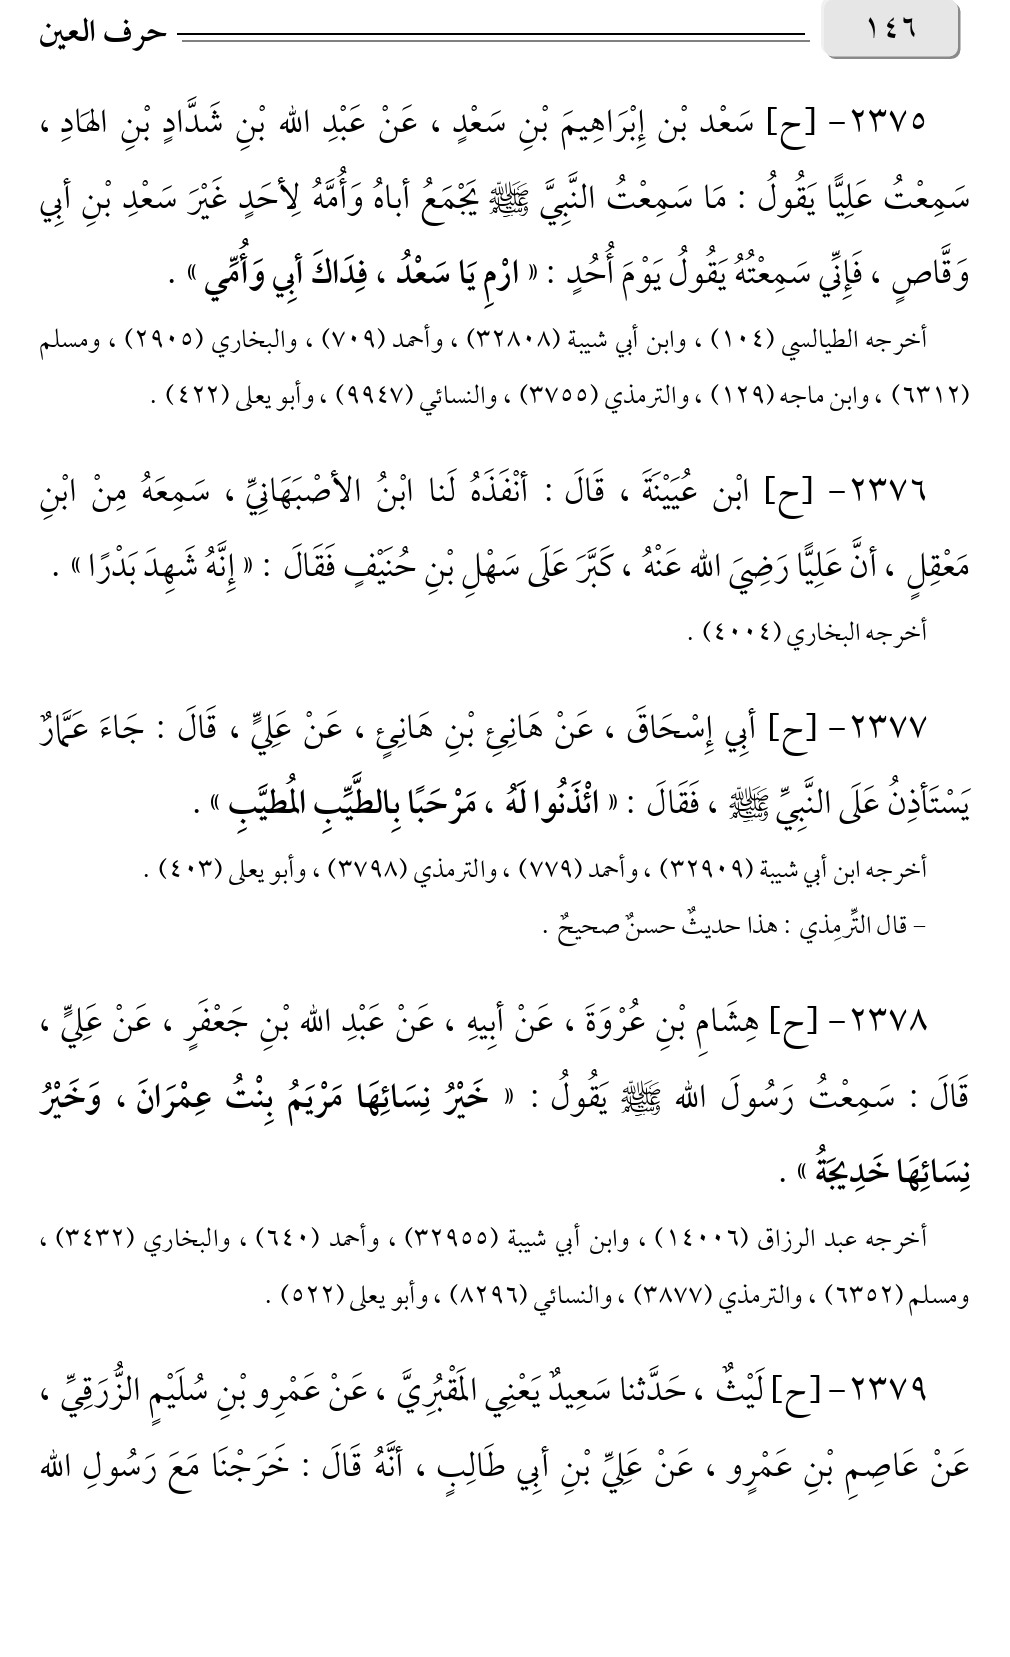 ١٤٦ حرف العين
٢٣٧٥- [ح] سَعْد بْن إِبْرَاهِيمَ بْنِ سَعْدٍ ، عَنْ عَبْدِ الله بْنِ شَدَّادٍ بْنِ الهَادِ ،
سَمِعْتُ عَلِيًّا يَقُولُ : مَا سَمِعْتُ النَّبِيَّ ﷺ يَجْمَعُ أباهُ وَأُمَّهُ لِأحَدٍ غَيْرَ سَعْدِ بْنِ أبِي
وَقَّاصٍ ، فَإِنِّي سَمِعْتُهُ يَقُولُ يَوْمَ أُحُدٍ : « ارْمِ يَا سَعْدُ ، فِدَاكَ أبِي وَأُمِّي » .
أخرجه الطيالسي (١٠٤) ، وابن أبي شيبة (٣٢٨٠٨) ، وأحمد (٧٠٩) ، والبخاري (٢٩٠٥) ، ومسلم
(٦٣١٢) ، وابن ماجه (١٢٩) ، والترمذي (٣٧٥٥) ، والنسائي (٩٩٤٧) ، وأبو يعلى (٤٢٢) .
٢٣٧٦- [ح] ابْن عُيَيْنَةَ ، قَالَ : أنْفَذَهُ لَنا ابْنُ الأصْبَهَانِيِّ ، سَمِعَهُ مِنْ ابْنِ
مَعْقِلٍ ، أنَّ عَلِيًّا رَضِيَ الله عَنْهُ ، كَبَّرَ عَلَى سَهْلِ بْنِ حُنَيْفٍ فَقَالَ : « إِنَّهُ شَهِدَ بَدْرًا » .
أخرجه البخاري (٤٠٠٤) .
٢٣٧٧- [ح] أبِي إِسْحَاقَ ، عَنْ هَانِئِ بْنِ هَانِئٍ ، عَنْ عَلِيٍّ ، قَالَ : جَاءَ عَمَّارٌ
يَسْتَأذِنُ عَلَى النَّبِيِّ ﷺ ، فَقَالَ : « ائْذَنُوا لَهُ ، مَرْحَبًا بِالطَّيِّبِ المُطيَّبِ » .
أخرجه ابن أبي شيبة (٣٢٩٠٩) ، وأحمد (٧٧٩) ، والترمذي (٣٧٩٨) ، وأبو يعلى (٤٠٣) .
– قال التِّرمِذي : هذا حديثٌ حسنٌ صحيحٌ .
٢٣٧٨- [ح] هِشَامِ بْنِ عُرْوَةَ ، عَنْ أبِيهِ ، عَنْ عَبْدِ الله بْنِ جَعْفَرٍ ، عَنْ عَلِيٍّ ،
قَالَ : سَمِعْتُ رَسُولَ الله ﷺ يَقُولُ : « خَيْرُ نِسَائِهَا مَرْيَمُ بِنْتُ عِمْرَانَ ، وَخَيْرُ
نِسَائِهَا خَدِيجَةُ » .
أخرجه عبد الرزاق (١٤٠٠٦) ، وابن أبي شيبة (٣٢٩٥٥) ، وأحمد (٦٤٠) ، والبخاري (٣٤٣٢) ،
ومسلم (٦٣٥٢) ، والترمذي (٣٨٧٧) ، والنسائي (٨٢٩٦) ، وأبو يعلى (٥٢٢) .
٢٣٧٩- [ح] لَيْثٌ ، حَدَّثنا سَعِيدٌ يَعْنِي المَقْبُرِيَّ ، عَنْ عَمْرِو بْنِ سُلَيْمٍ الزُّرَقِيِّ ،
عَنْ عَاصِمِ بْنِ عَمْرٍو ، عَنْ عَلِيِّ بْنِ أبِي طَالِبٍ ، أنَّهُ قَالَ : خَرَجْنَا مَعَ رَسُولِ الله